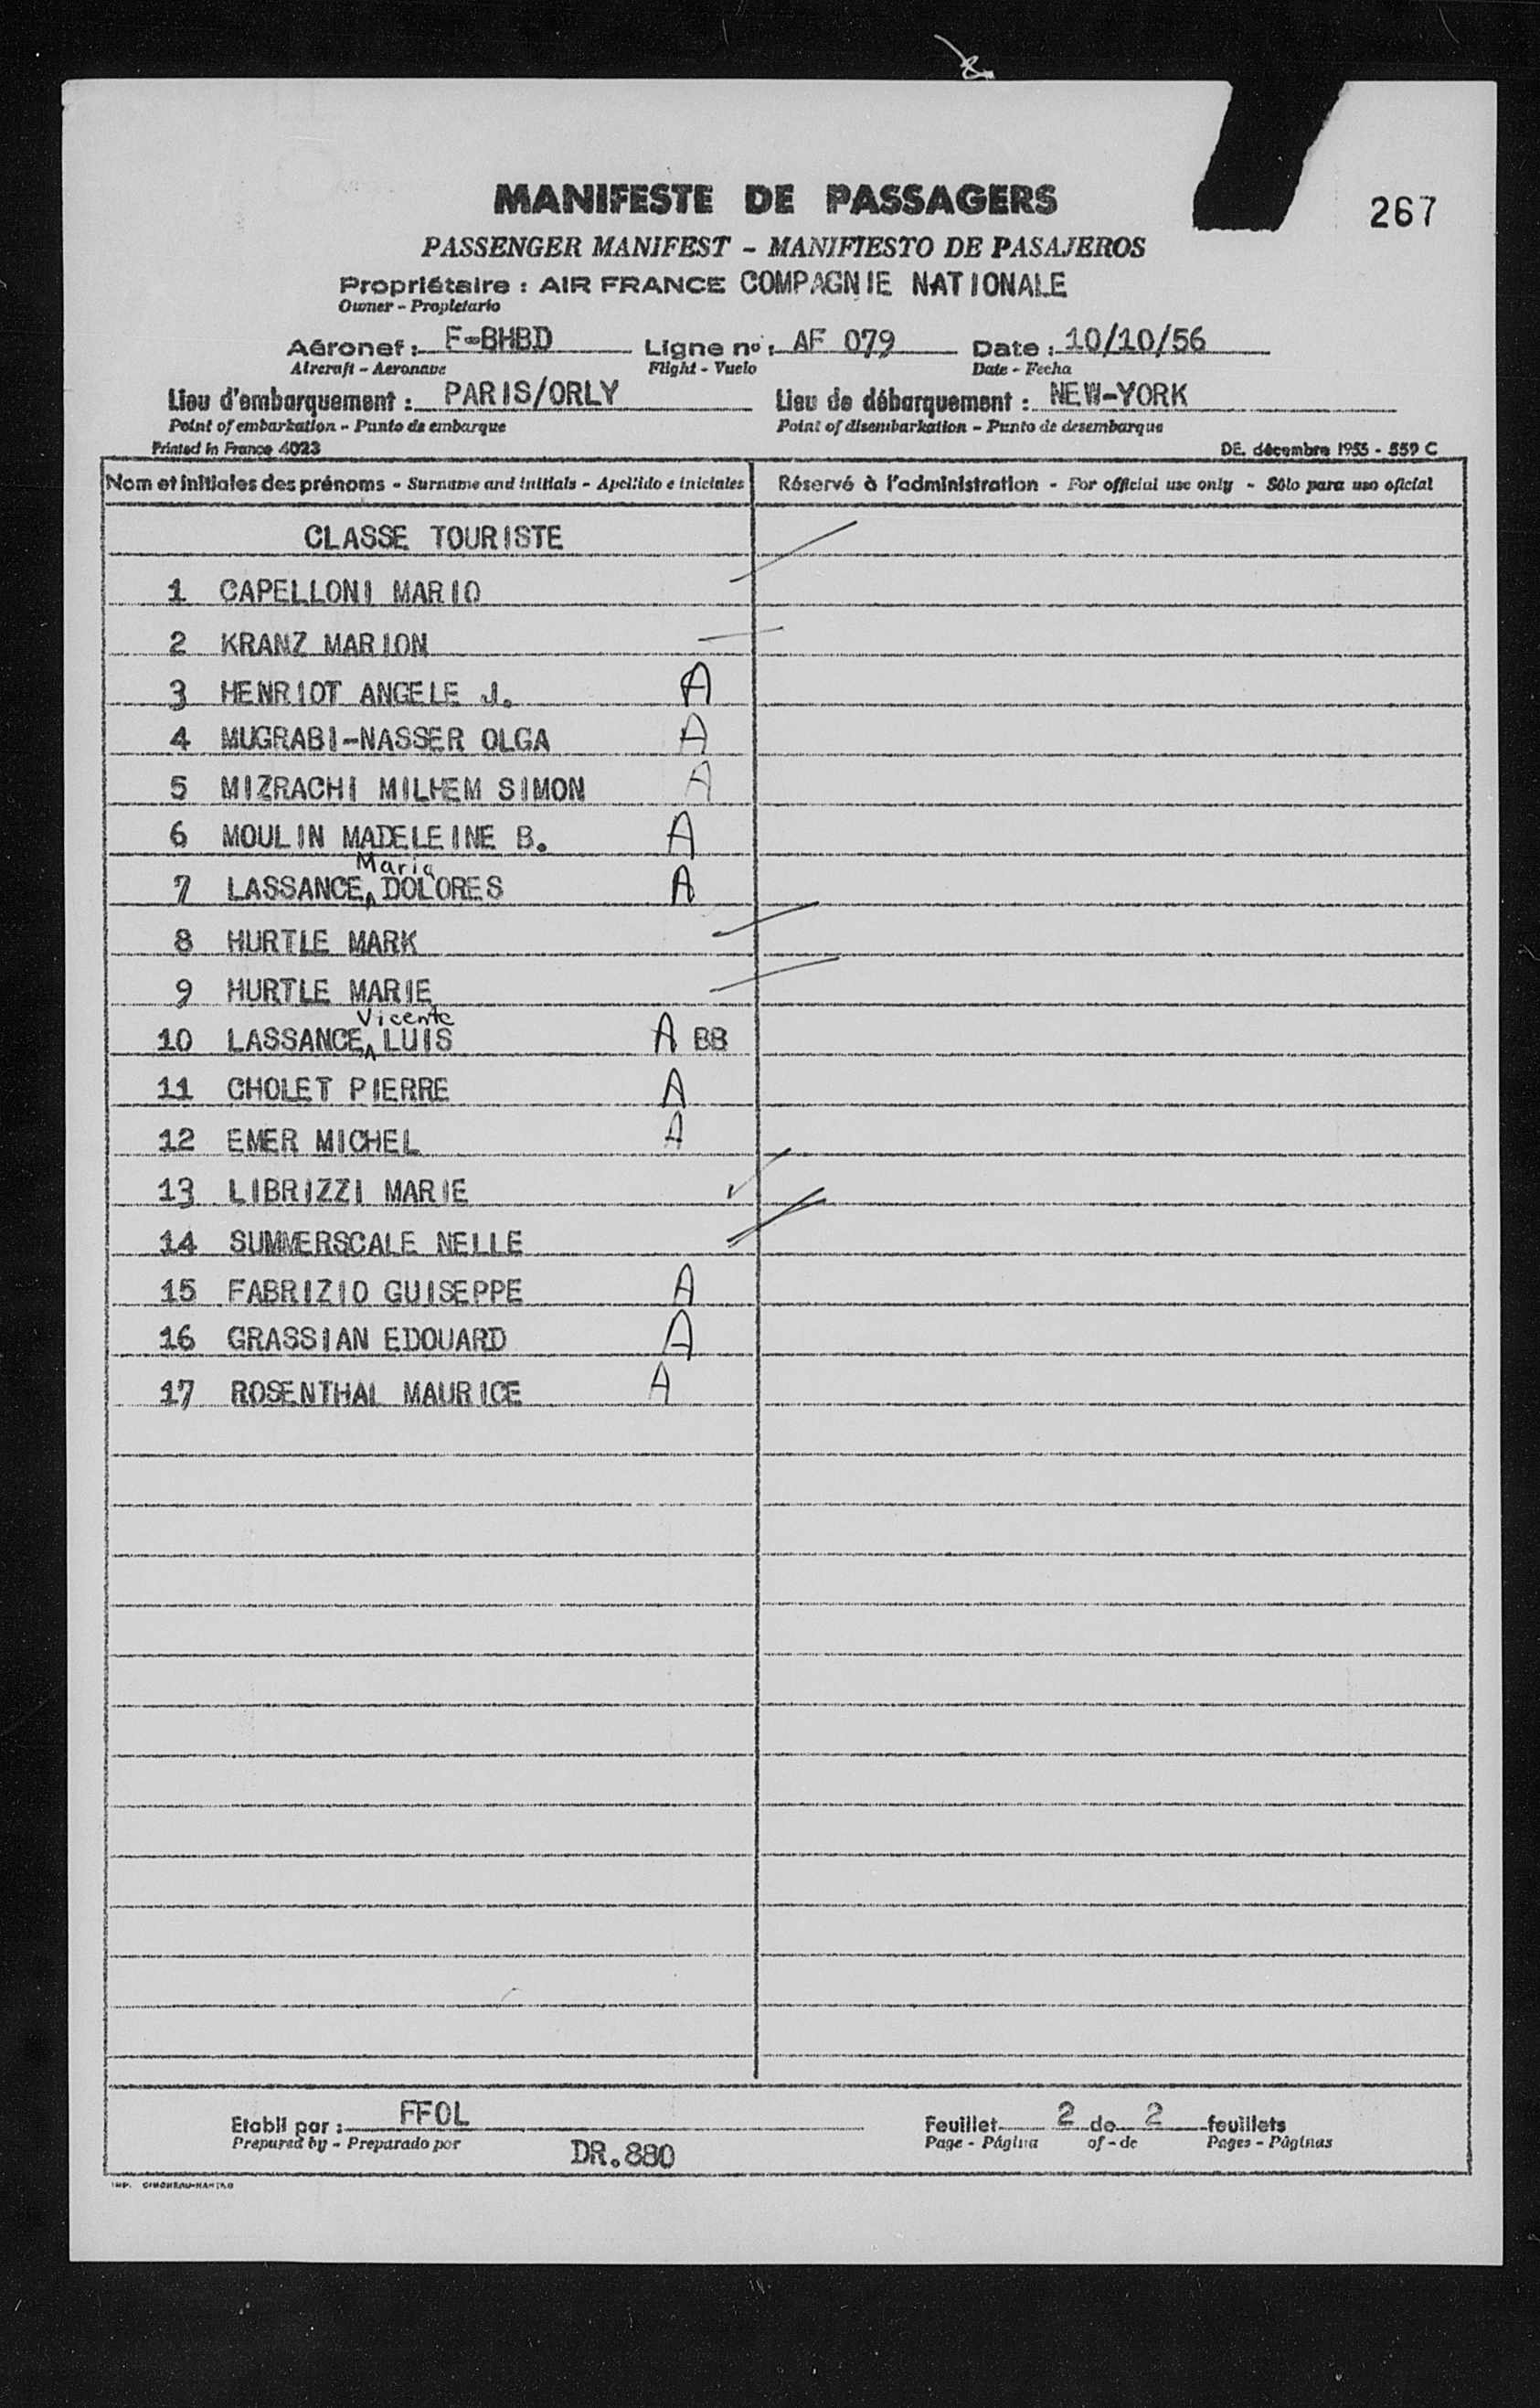 MANIFESTE DE PASSAGERS
267
PASSENGER MANIFEST - MANIFIESTO DE PASAJEROS
Propriétaire : AIR FRANCE COMPAGNIE NATIONALE
Owner - Propietario
Aéronef : F-BHBD Ligne no : AF 079 Date : 10/10/56
Aircraft - Aeronave Flight - Vuelo Date - Fecha
Lieu d'embarquement : PARIS/ORLY Lieu de débarquement : NEW-YORK
Point of embarkation - Punto de embarque Point of disembarkation - Punto de desembarque
Printed in France 4023 DE. décembre 1955 - 559 C
Nom et initiales des prénoms - Surname and initials - Apellido e iniciales Réservé à l'administration - For official use only - Sólo para uso oficial
CLASSE TOURISTE
1 CAPELLONI MARIO
2 KRANZ MARION
3 HENRIOT ANGELE J. A
4 MUGRABI-NASSER OLGA A
5 MIZRACHI MILHEM SIMON A
6 MOULIN MADELEINE B. A
Maria
7 LASSANCE DOLORES A
8 HURTLE MARK
9 HURTLE MARIE
Vicente
10 LASSANCE LUIS A BB
11 CHOLET PIERRE A
12 EMER MICHEL A
13 LIBRIZZI MARIE
14 SUMMERSCALE NELLE
15 FABRIZIO GUISEPPE A
16 GRASSIAN EDOUARD A
17 ROSENTHAL MAURICE A
Etabli par : FFOL Feuillet 2 de 2 feuillets
Prepared by - Preparado por Page - Página of - de Pages - Páginas
DR.880
IMP.